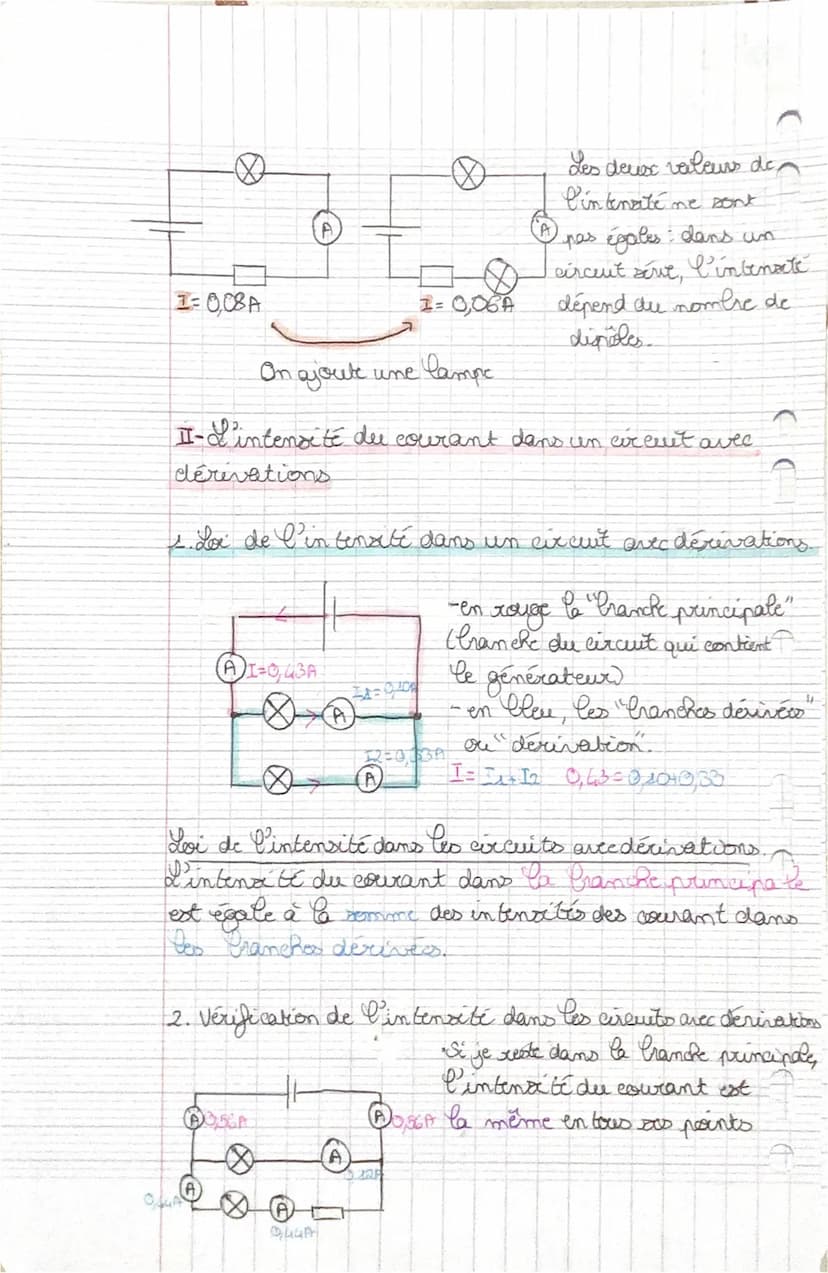 Les deux valeurs de
l'intensité ne sont
pas égales : dans un
circuit série, l'intensité
dépend du nombre de
dipôles.
A
A
I = 0,08A
I = 0,06A
On ajoute une lampe
II- L'intensité du courant dans un circuit avec
dérivations
1. Loi de l'intensité dans un circuit avec dérivations
- en rouge la "branche principale"
(branche du circuit qui contient
le générateur)
- en bleu, les "branches dérivées"
ou "dérivation".
I = I1+I2 0,43 = 0,10+0,33
A I=0,43A
I1=0,10A
A
I2=0,33A
A
Loi de l'intensité dans les circuits avec dérivations.
L'intensité du courant dans la branche principale
est égale à la somme des intensités des courant dans
les branches dérivées.
2. Vérification de l'intensité dans les circuits avec dérivations
• Si je reste dans la branche principale,
l'intensité du courant est
la même en tous ses points
A 0,56A
A 0,56A
A
0,12A
0,44A A
A
0,44A